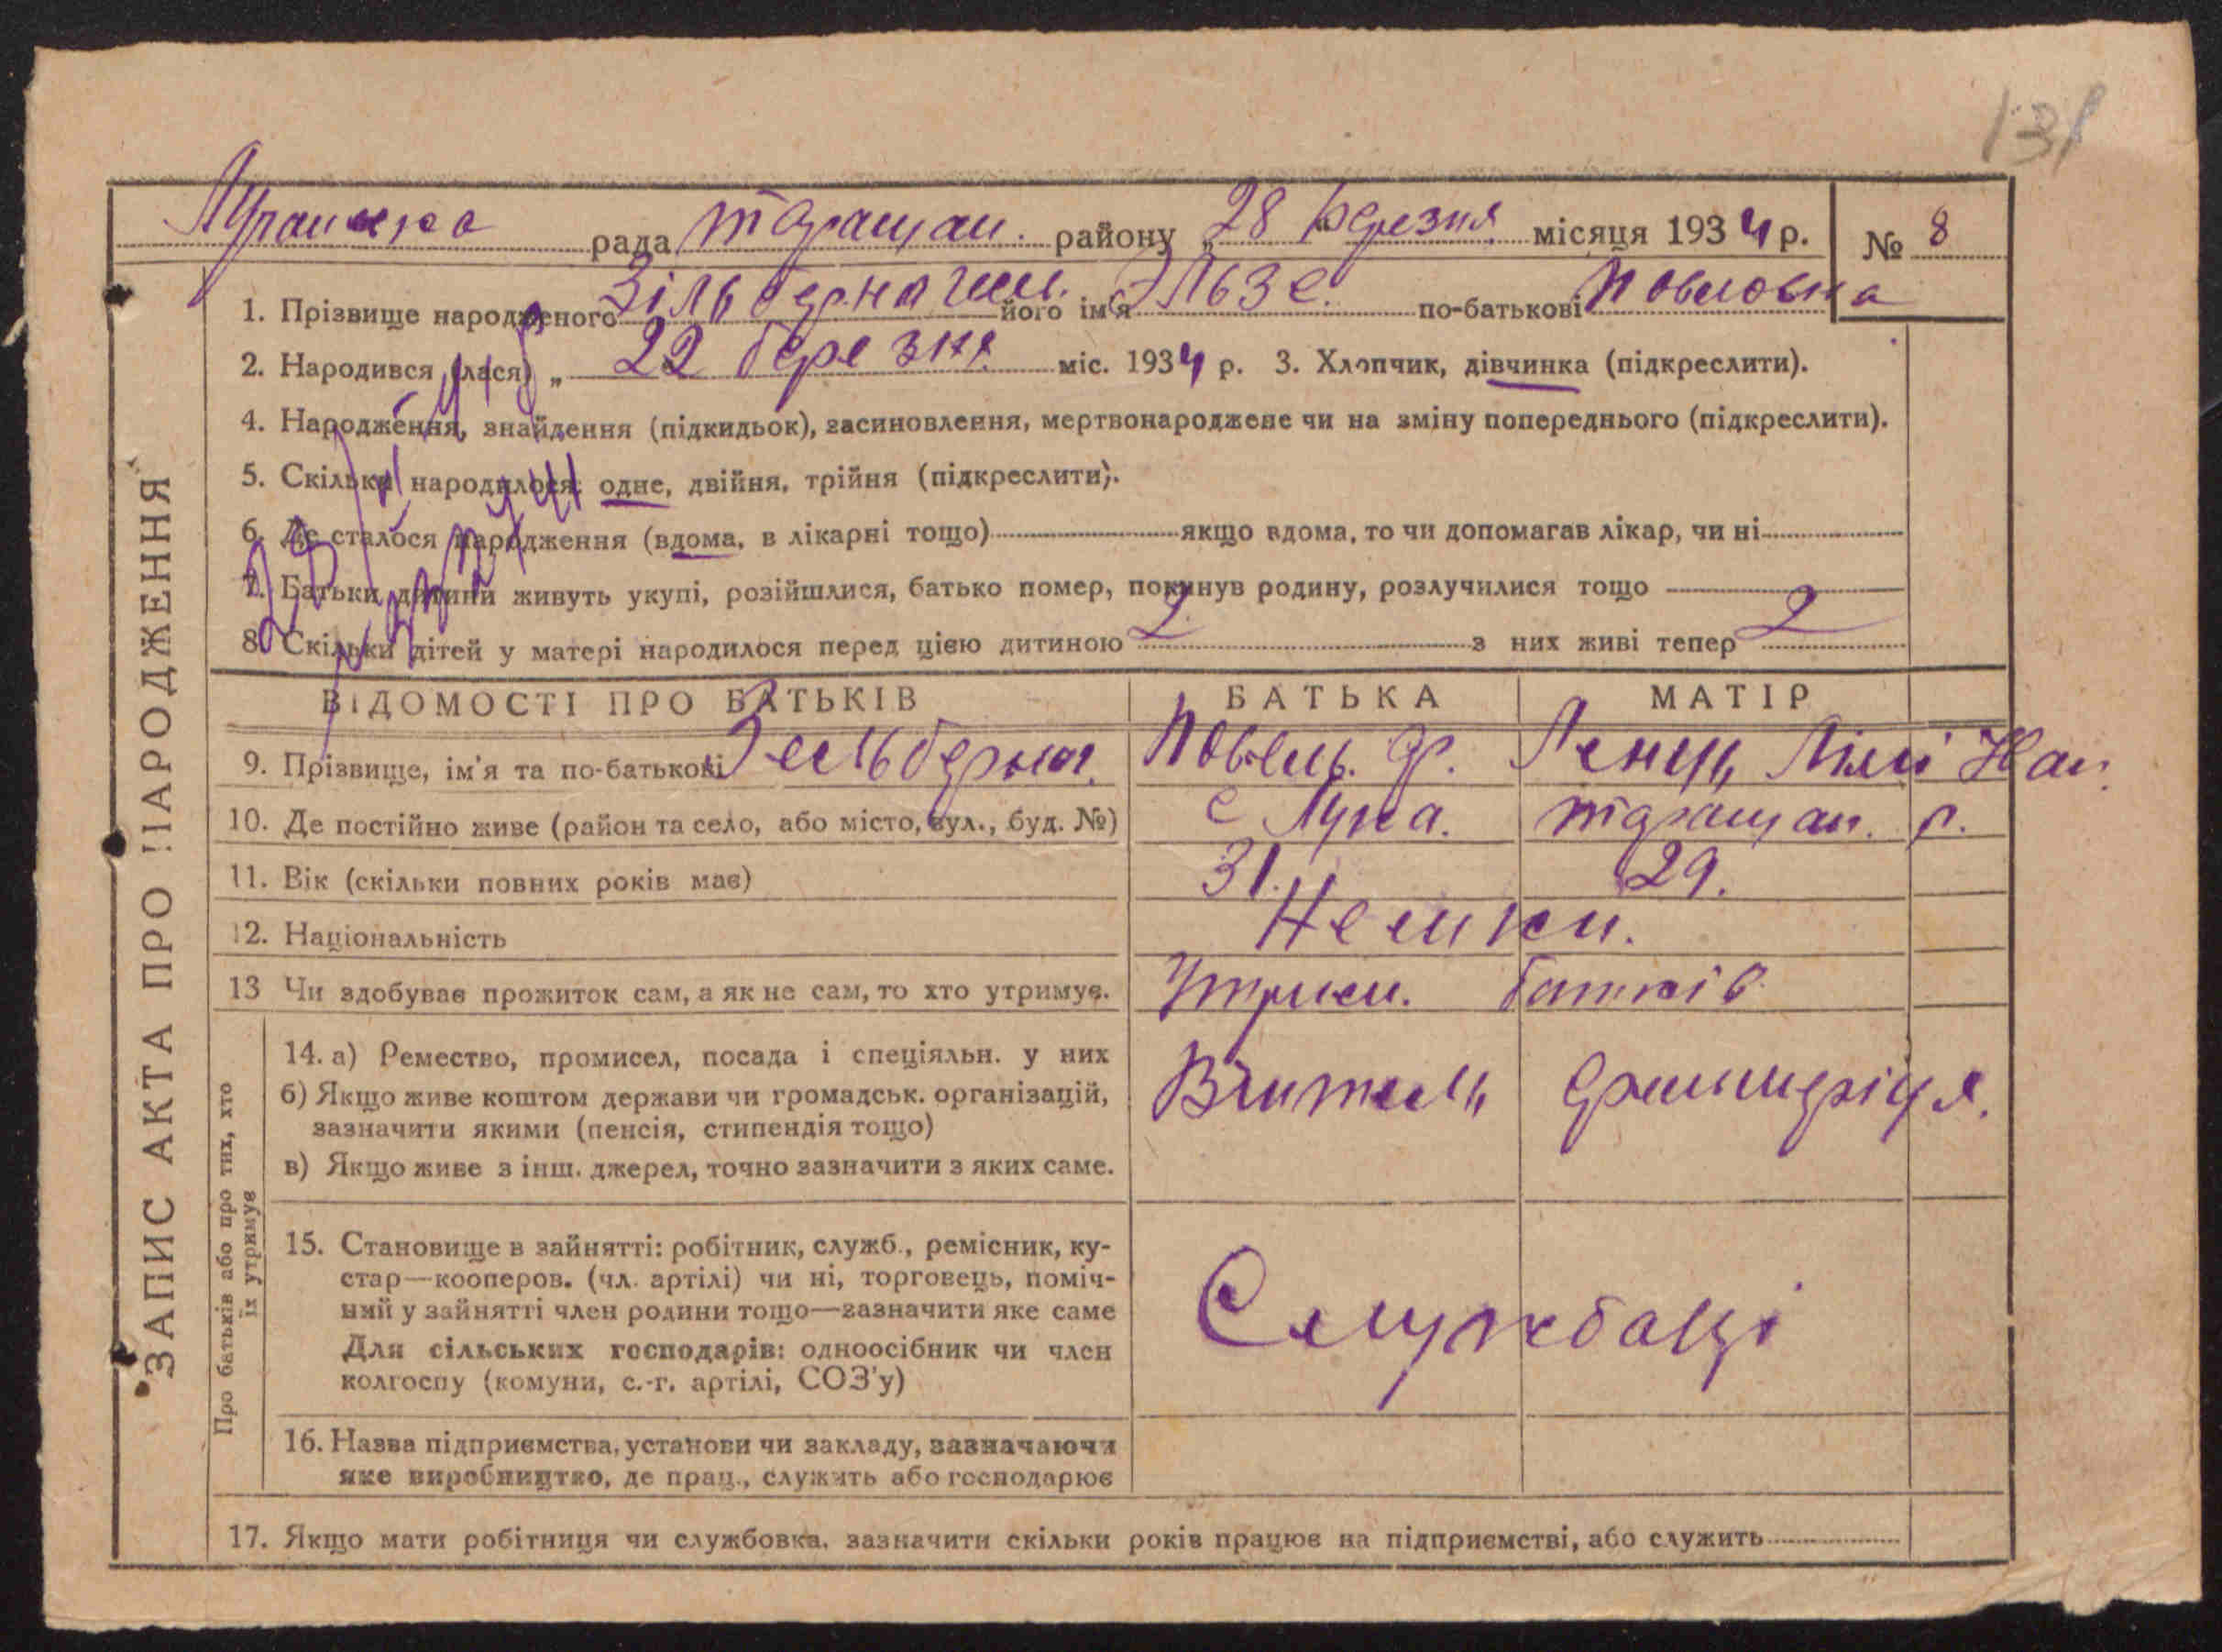 131
рада таращан. району „28 березня місяця 1934 р. № 8
1. Прізвище народженого його ім'я Эльзе. по-батькові Повловна
2. Народився (лася) „ 22 березня міс. 1934 р. 3. Хлопчик, дівчинка (підкреслити).
4. Народження, знайдення (підкидьок), засиновлення, мертвонароджене чи на зміну попереднього (підкреслити).
5. Скільки народилося: одне, двійня, трійня (підкреслити).
6. Де сталося народження (вдома, в лікарні тощо) якщо вдома, то чи допомагав лікар, чи ні
7. Батьки дитини живуть укупі, розійшлися, батько помер, покинув родину, розлучилися тощо
8. Скільки дітей у матері народилося перед цією дитиною 2. з них живі тепер 2
ВІДОМОСТІ ПРО БАТЬКІВ БАТЬКА МАТІР
9. Прізвище, ім'я та по-батькові
10. Де постійно живе (район та село, або місто, вул., буд. №) с Лука. таращан. р.
11. Вік (скільки повних років має) 31. 29.
12. Національність Немки.
13 Чи здобуває прожиток сам, а як не сам, то хто утримує. батків
14. а) Ремество, промисел, посада і спеціяльн. у них Вчитель
б) Якщо живе коштом держави чи громадськ. організацій,
зазначити якими (пенсія, стипендія тощо)
в) Якщо живе з інш. джерел, точно зазначити з яких саме.
15. Становище в зайнятті: робітник, служб., ремісник, ку-
стар—кооперов. (чл. артілі) чи ні, торговець, поміч-
ний у зайнятті член родини тощо—зазначити яке саме Службаці
Для сільських господарів: одноосібник чи член
колгоспу (комуни, с.-г. артілі, СОЗ'у)
16. Назва підприємства, установи чи закладу, зазначаючи
яке виробництво, де прац., служить або господарює
17. Якщо мати робітниця чи службовка, зазначити скільки років працює на підприємстві, або служить
ЗАПИС АКТА ПРО НАРОДЖЕННЯ
Про батьків або про тих, хто
їх утримує